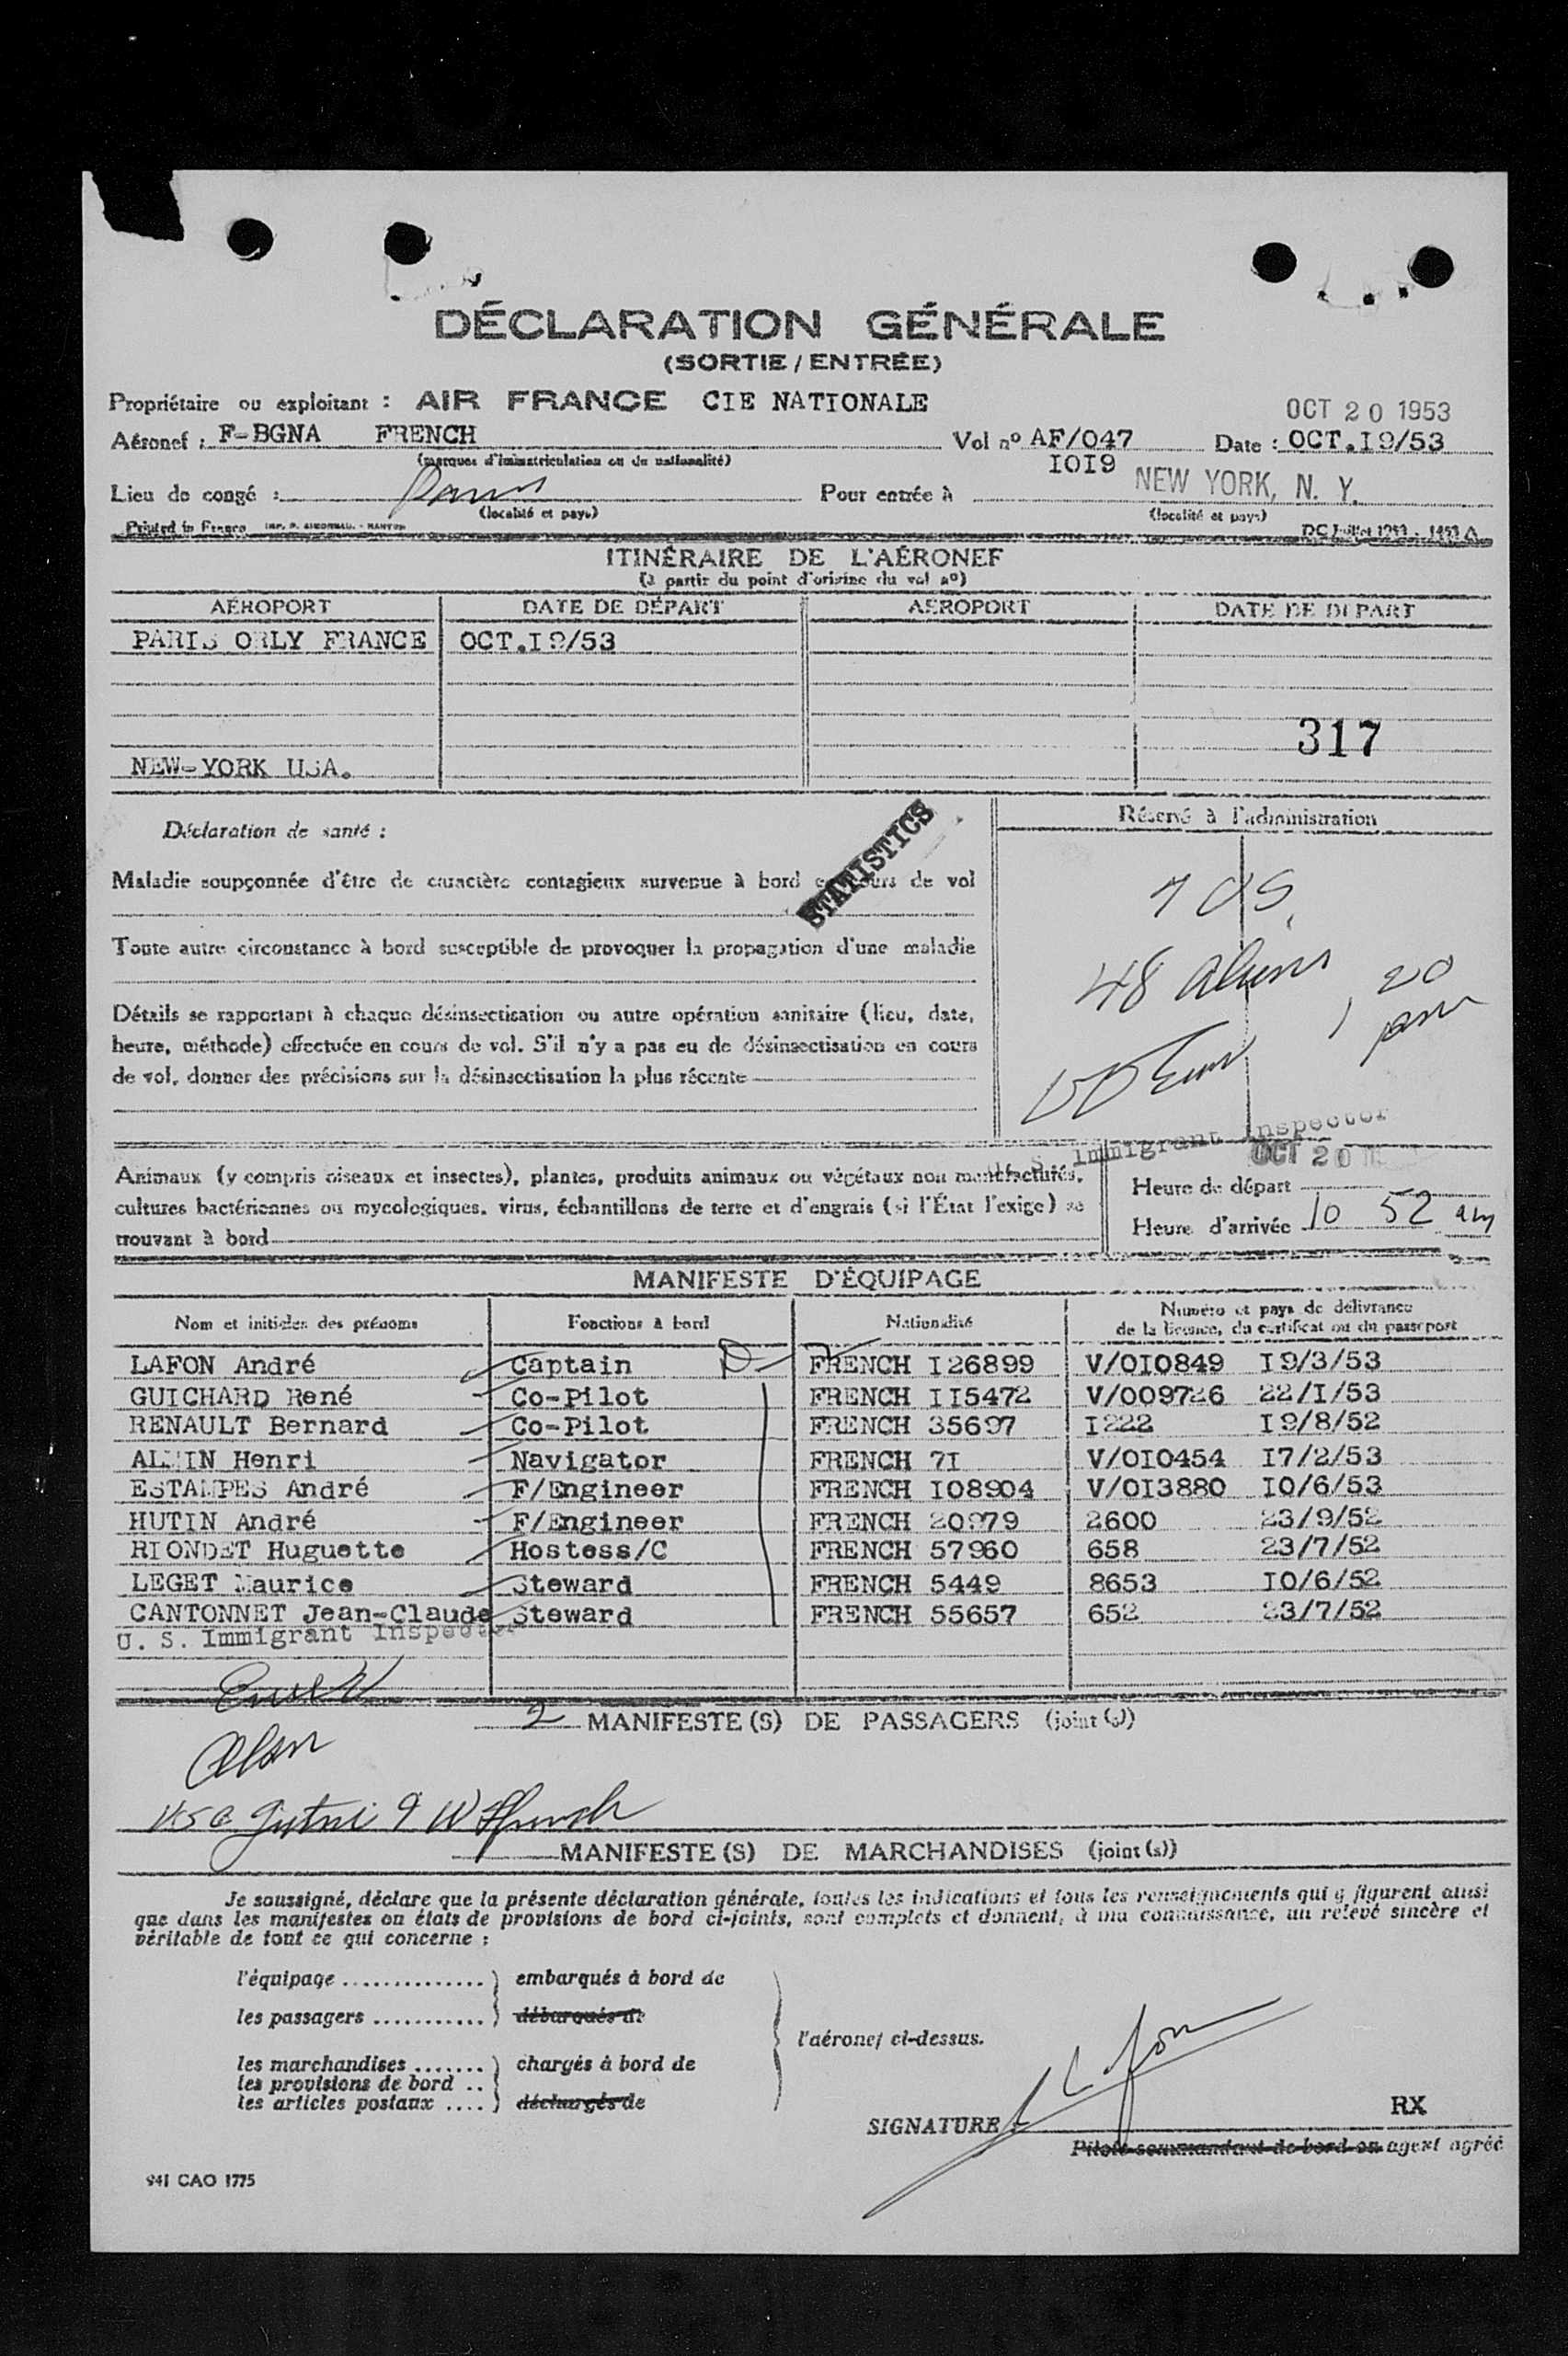 DÉCLARATION GÉNÉRALE
(SORTIE / ENTRÉE)
Propriétaire ou exploitant : AIR FRANCE CIE NATIONALE
OCT 20 1953
Aéronef : F-BGNA FRENCH Vol nº AF/047 Date : OCT.I9/53
(marques d'immatriculation ou de nationalité) IOI9
Lieu de congé : Paris Pour entrée à NEW YORK, N. Y.
(localité et pays) (localité et pays)
Printed in France DC Juillet 1953 - 1453 A
ITINÉRAIRE DE L'AÉRONEF
(à partir du point d'origine du vol nº)
AÉROPORT DATE DE DÉPART AÉROPORT DATE DE DÉPART
PARIS ORLY FRANCE OCT.I9/53
317
NEW-YORK USA.
Déclaration de santé : STATISTICS Réservé à l'administration
Maladie soupçonnée d'être de caractère contagieux survenue à bord en cours de vol
Toute autre circonstance à bord susceptible de provoquer la propagation d'une maladie
48 aliens 20
Détails se rapportant à chaque désinsectisation ou autre opération sanitaire (lieu, date,
heure, méthode) effectuée en cours de vol. S'il n'y a pas eu de désinsectisation en cours
de vol, donner des précisions sur la désinsectisation la plus récente
U. S. Immigrant Inspector
OCT 20
Animaux (y compris oiseaux et insectes), plantes, produits animaux ou végétaux non manufacturés,
cultures bactériennes ou mycologiques, virus, échantillons de terre et d'engrais (si l'État l'exige) se
trouvant à bord
Heure de départ
Heure d'arrivée 10 52 am
MANIFESTE D'ÉQUIPAGE
Nom et initiales des prénoms Fonctions à bord Nationalité Numéro et pays de délivrance
de la licence, du certificat ou du passeport
LAFON André Captain D FRENCH I26899 V/OIO849 I9/3/53
GUICHARD René Co-Pilot FRENCH II5472 V/009726 22/I/53
RENAULT Bernard Co-Pilot FRENCH 35697 I222 I9/8/52
Henri Navigator FRENCH 7I V/OIO454 I7/2/53
ESTAMPES André F/Engineer FRENCH IO8904 V/OI3880 IO/6/53
HUTIN André F/Engineer FRENCH 20979 2600 23/9/52
RIONDET Huguette Hostess/C FRENCH 57960 658 23/7/52
LEGET Maurice Steward FRENCH 5449 8653 IO/6/52
CANTONNET Jean-Claude Steward FRENCH 55657 652 23/7/52
U. S. Immigrant Inspector
2 MANIFESTE(S) DE PASSAGERS (joint(s))
MANIFESTE(S) DE MARCHANDISES (joint(s))
Je soussigné, déclare que la présente déclaration générale, toutes les indications et tous les renseignements qui y figurent ainsi
que dans les manifestes ou états de provisions de bord ci-joints, sont complets et donnent, à ma connaissance, un relevé sincère et
véritable de tout ce qui concerne :
l'équipage .............. ) embarqués à bord de
les passagers ........... ) débarqués de
l'aéronef ci-dessus.
les marchandises ....... ) chargés à bord de
les provisions de bord ..
les articles postaux .... ) déchargés de
SIGNATURE Lafon RX
Pilote commandant de bord ou agent agréé
941 CAO 1775